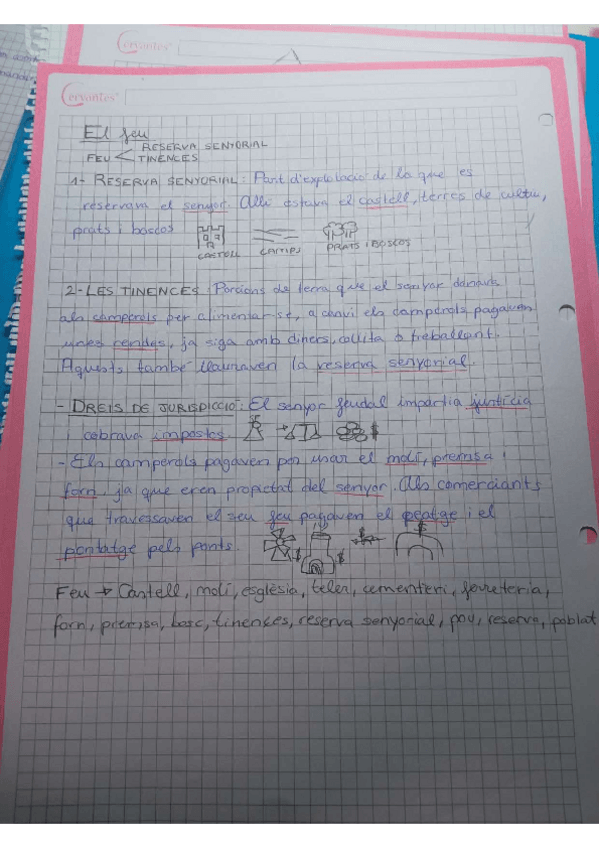 Cervantes
Cervantes
El feu
RESERVA SENYORIAL
FEU < TINENCES
1- RESERVA SENYORIAL: Part d'explotació de la que es
reservava el senyor. Allí estava el castell, terres de cultiu,
prats i boscos
CASTELL
CAMPS
PRATS i BOSCOS
2- LES TINENCES: Porcions de terra que el senyor donava
als camperols per alimentar-se, a canvi els camperols pagaven
unes rendes, ja siga amb diners, collita o treballant.
Aquests també llauraven la reserva senyorial.
- DRETS DE JURISDICCIÓ: El senyor feudal impartia justícia
cobrava impostos
- Els camperols pagaven per usar el molí, premsa i
forn, ja que eren propietat del senyor. Als comerciants
que travessaven el seu feu pagaven el peatge i el
pontatge pels ponts.
Feu → Castell, molí, església, teler, cementieri, ferreteria,
forn, premsa, bosc, tinences, reserva senyorial, pou, reserva, poblat